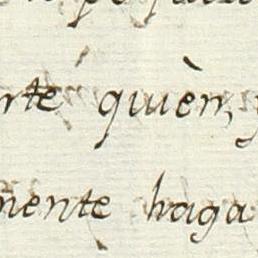 rté quièn,
mente haga